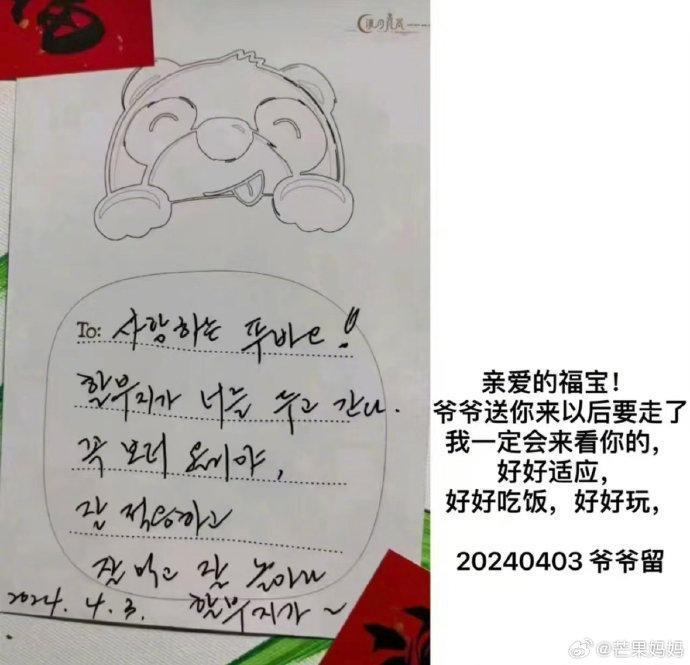 To: 사랑하는 푸바오!
할부지가 너를 두고 간다.
꼭 보러
잘 적응하고
잘 먹고 잘 놀아라
2024. 4. 3. 할부지가 ~
亲爱的福宝！
爷爷送你来以后要走了
我一定会来看你的，
好好适应，
好好吃饭，好好玩，
20240403 爷爷留
@芒果妈妈